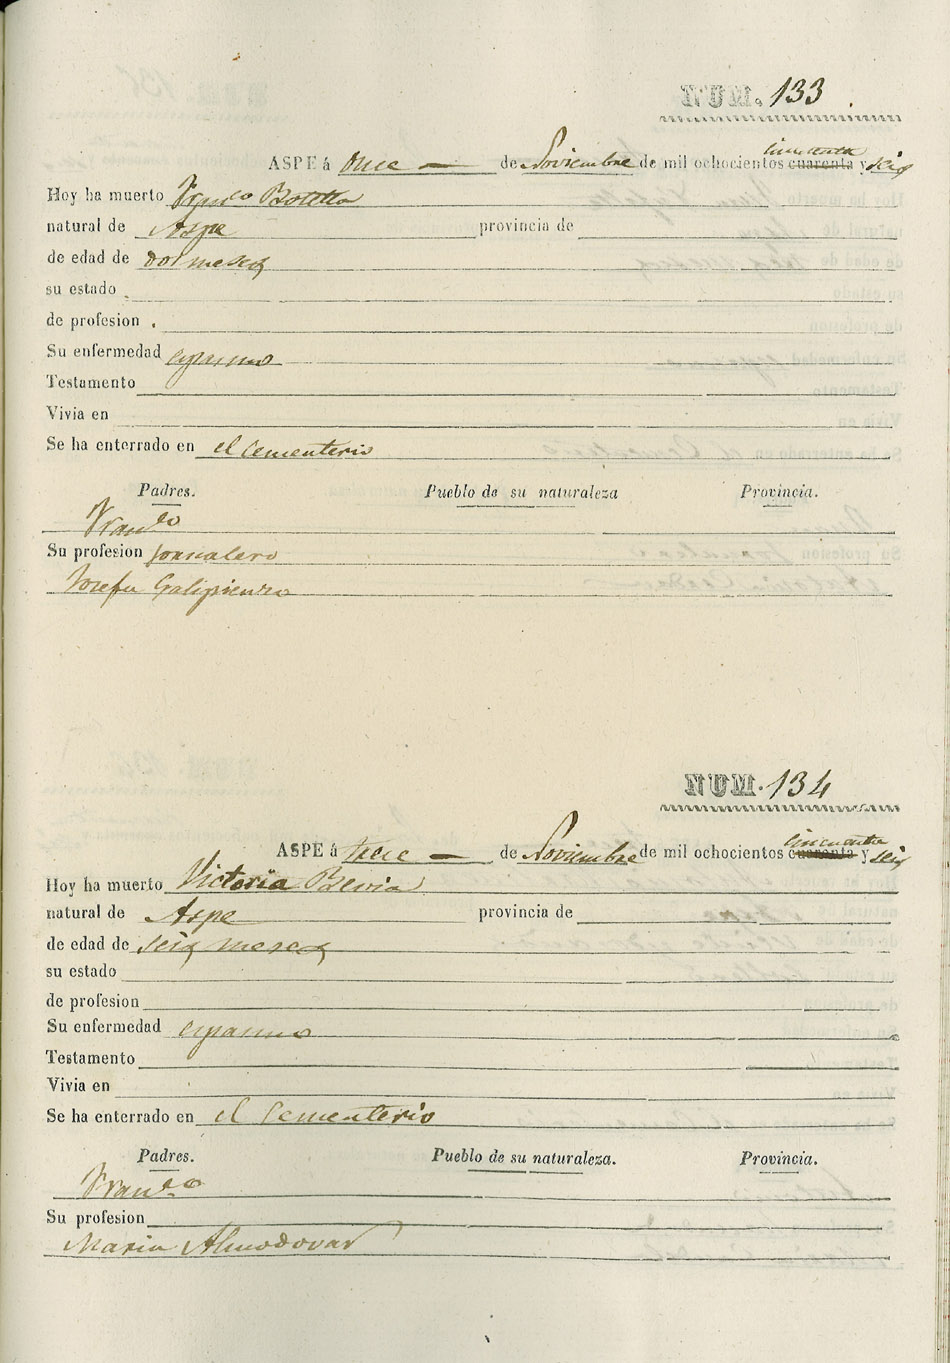 NUM. 133
ASPE á Once — de Noviembre de mil ochocientos cuarenta cincuenta y seis
Hoy ha muerto Franco Botella
natural de Aspe provincia de
de edad de dos meses
su estado
de profesion
Su enfermedad espasmo
Testamento
Vivia en
Se ha enterrado en el Cementerio
Padres. Pueblo de su naturaleza Provincia.
Franco
Su profesion Jornalero
Josefa Galipienzo
NUM. 134
ASPE á trece — de Noviembre de mil ochocientos cuarenta cincuenta y seis
Hoy ha muerto Victoria Bevia
natural de Aspe provincia de
de edad de seis meses
su estado
de profesion
Su enfermedad espasmo
Testamento
Vivia en
Se ha enterrado en el Cementerio
Padres. Pueblo de su naturaleza. Provincia.
Franco
Su profesion
Maria Almodovar